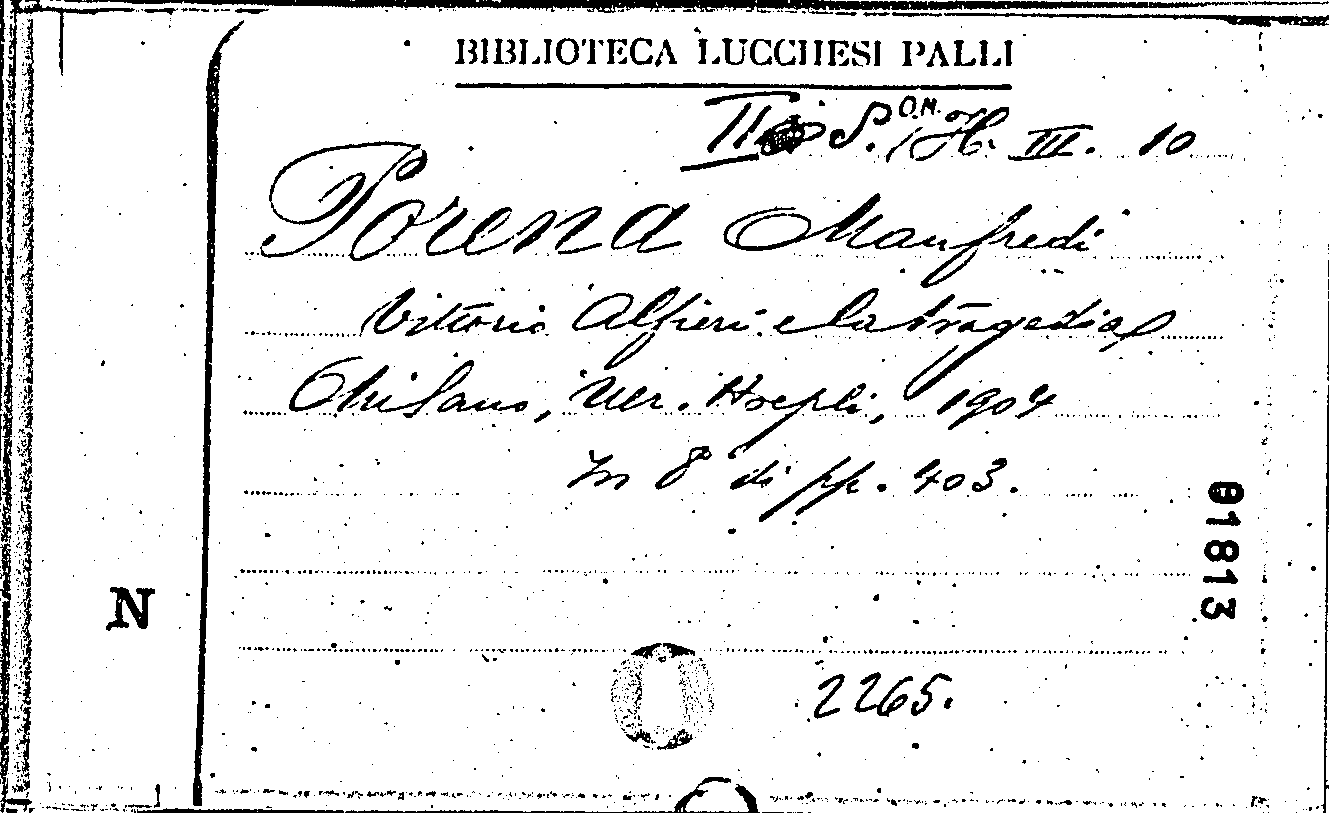 BIBLIOTECA LUCCHESI PALLI
II S. O.M. H. III. 10
Porena Manfredi
Vittorio Alfieri e la tragedia
Milano, Ulr. Hoepli, 1904
In 8° di pp. 403.
01813
N
2265.